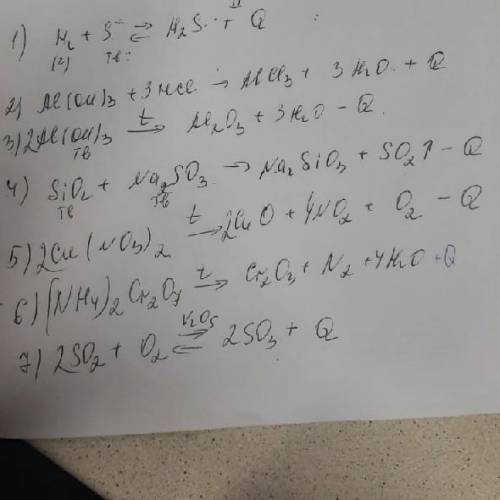 1) H₂ + S ⇄ H₂S + Q
(г) тв
2) Al(OH)₃ + 3HCl → AlCl₃ + 3H₂O + Q
3) 2Al(OH)₃ t→ Al₂O₃ + 3H₂O - Q
тв
4) SiO₂ + Na₂SO₃ → Na₂SiO₃ + SO₂↑ - Q
тв тв
5) 2Cu(NO₃)₂ t→ 2CuO + 4NO₂ + O₂ - Q
6) (NH₄)₂Cr₂O₇ t→ Cr₂O₃ + N₂ + 4H₂O + Q
7) 2SO₂ + O₂ V₂O₅⇄ 2SO₃ + Q